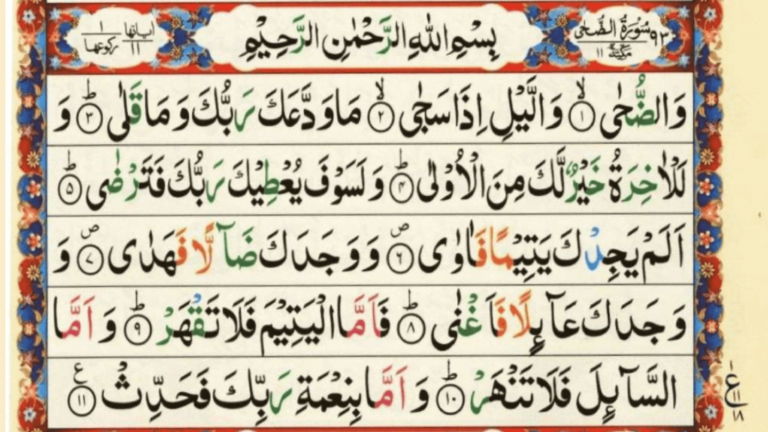 سُوْرَةُ الضُّحٰى ٩٣ مَكِّيَّةٌ ١١
بِسْمِ اللهِ الرَّحْمٰنِ الرَّحِيْمِ
اٰيَاتُهَا ١١ رُكُوْعُهَا ١
وَالضُّحٰى ۙ‏﴿۱﴾ وَالَّيْلِ اِذَا سَجٰى ۙ‏﴿۲﴾ مَا وَدَّعَكَ رَبُّكَ وَمَا قَلٰى ؕ‏﴿۳﴾ وَ
لَلْاٰخِرَةُ خَيْرٌ لَّكَ مِنَ الْاُوْلٰى ؕ‏﴿۴﴾ وَلَسَوْفَ يُعْطِيْكَ رَبُّكَ فَتَرْضٰى ؕ‏﴿۵﴾
اَلَمْ يَجِدْكَ يَتِيْمًا فَاٰوٰى ۪‏﴿۶﴾ وَوَجَدَكَ ضَآلًّا فَهَدٰى ۪‏﴿۷﴾ وَ
وَجَدَكَ عَآئِلًا فَاَغْنٰى ؕ‏﴿۸﴾ فَاَمَّا الْيَتِيْمَ فَلَا تَقْهَرْ ؕ‏﴿۹﴾ وَاَمَّا
السَّآئِلَ فَلَا تَنْهَرْ ؕ‏﴿۱۰﴾ وَاَمَّا بِنِعْمَةِ رَبِّكَ فَحَدِّثْ ‏﴿۱۱﴾ ع
١ ع ١١ ١٨